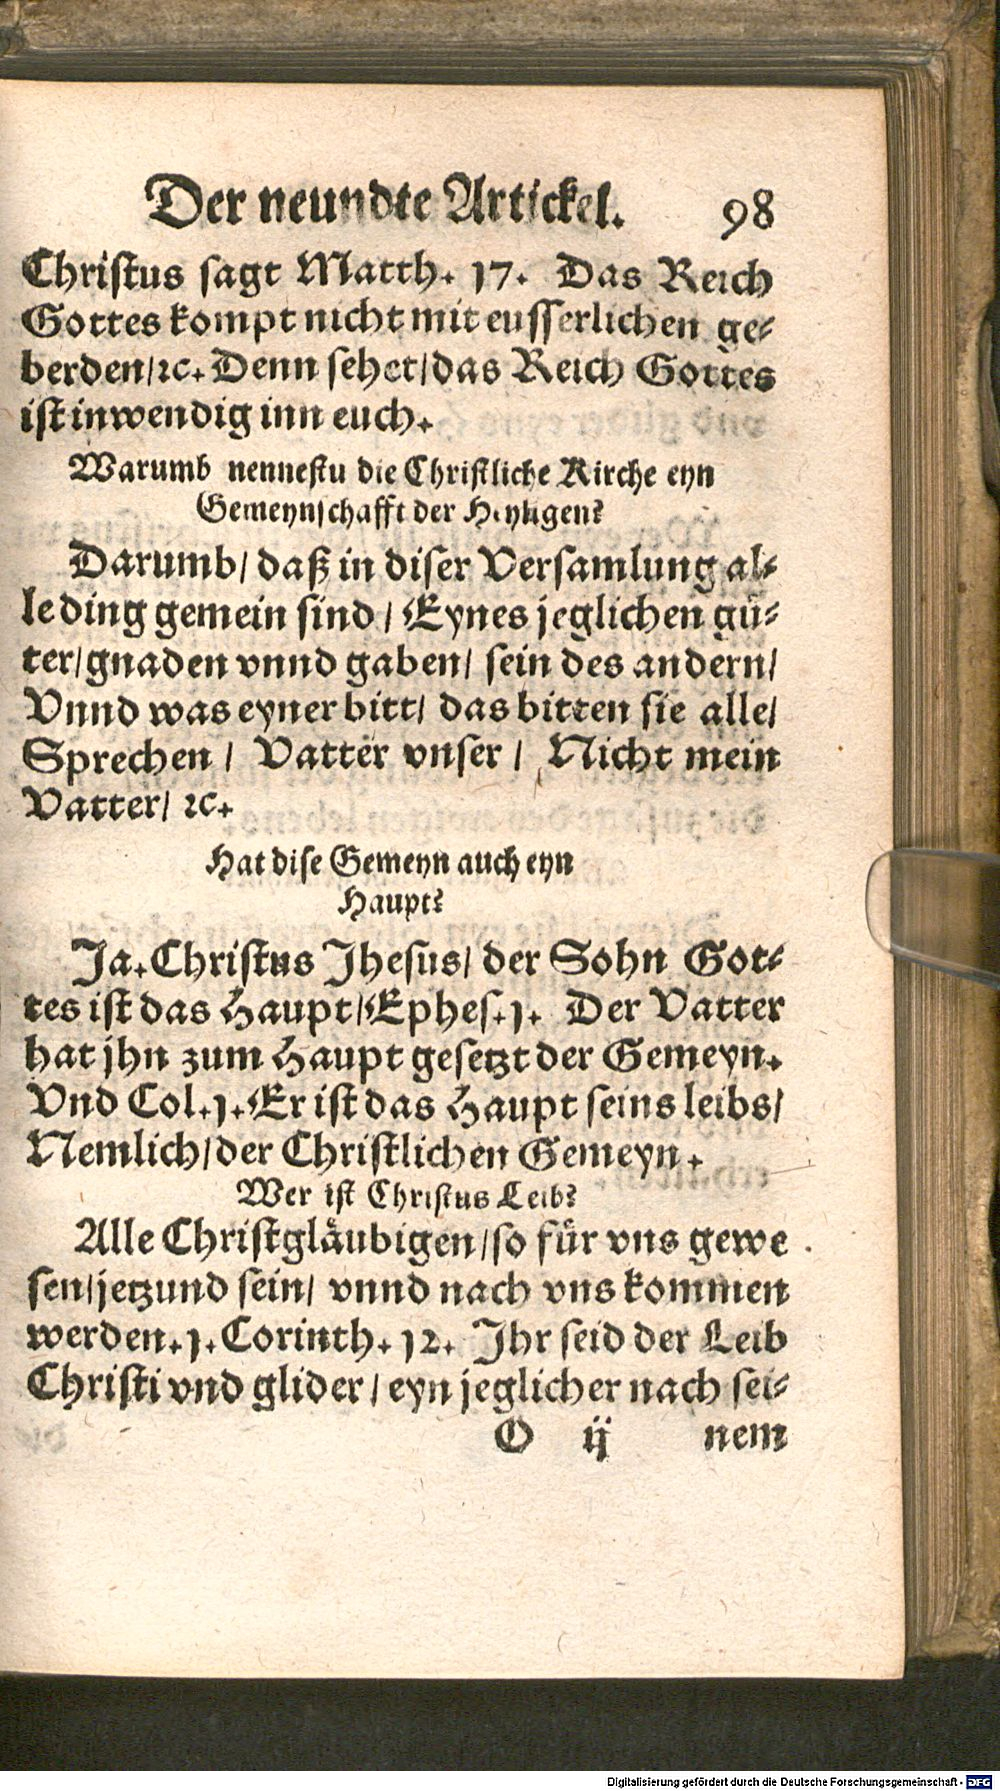 Der neundte Artickel. 98
Christus sagt Matth. 17. Das Reich
Gottes kompt nicht mit eusserlichen ge-
berden/ ꝛc. Denn sehet/ das Reich Gottes
ist inwendig inn euch.
Warumb nennestu die Christliche Kirche eyn
Gemeynschafft der Heyligen?
Darumb/ daß in diser Versamlung al-
le ding gemein sind/ Eynes jeglichen guͤ-
ter/ gnaden vnnd gaben/ sein des andern/
Vnnd was eyner bitt/ das bitten sie alle/
Sprechen/ Vatter vnser/ Nicht mein
Vatter/ ꝛc.
Hat dise Gemeyn auch eyn
Haupt?
Ja. Christus Jhesus/ der Sohn Got-
tes ist das Haupt/ Ephes. 1. Der Vatter
hat jhn zum Haupt gesetzt der Gemeyn.
Vnd Col. 1. Er ist das Haupt seins leibs/
Nemlich/ der Christlichen Gemeyn.
Wer ist Christus Leib?
Alle Christglaͤubigen/ so fuͤr vns gewe
sen/ jetzund sein/ vnnd nach vns kommen
werden. 1. Corinth. 12. Jhr seid der Leib
Christi vnd glider/ eyn jeglicher nach sei-
O ij nem
Digitalisierung gefördert durch die Deutsche Forschungsgemeinschaft - DFG